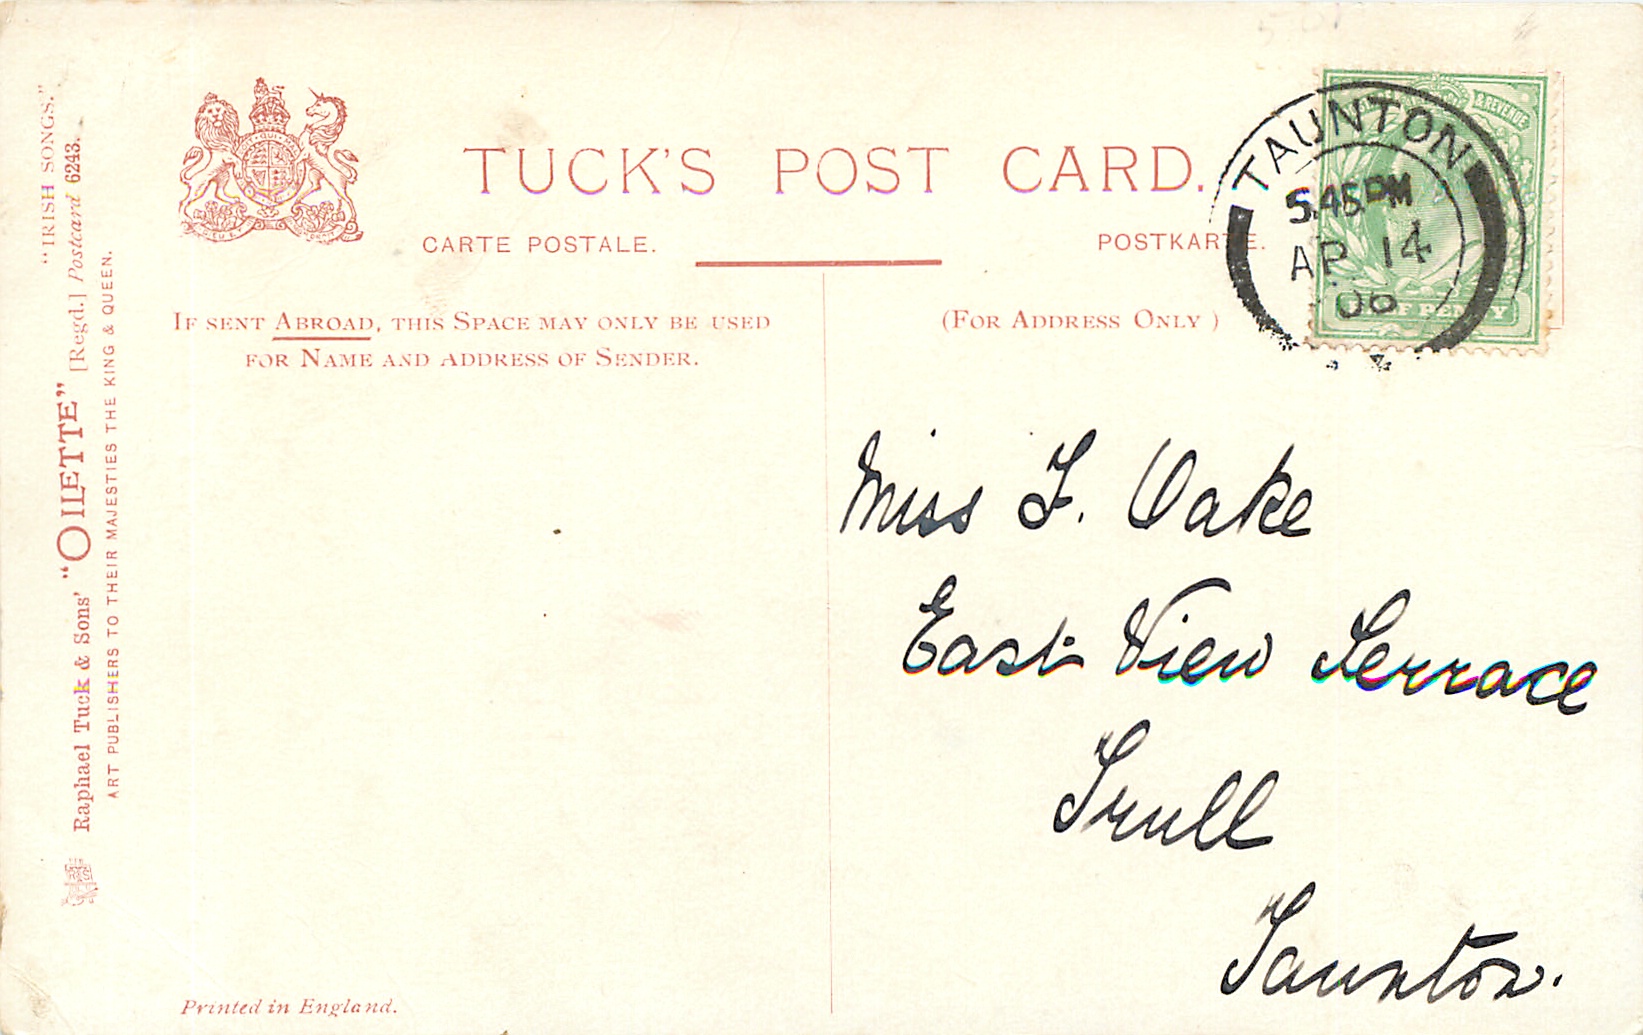 TUCK'S POST CARD.
CARTE POSTALE. POSTKARTE.
IF SENT ABROAD, THIS SPACE MAY ONLY BE USED
FOR NAME AND ADDRESS OF SENDER.
(FOR ADDRESS ONLY)
TAUNTON
5.45PM
AP 14
06
& REVENUE
HALF PENNY
Miss F. Oake
East View Terrace
Trull
Taunton.
"IRISH SONGS."
Raphael Tuck & Sons' "OILETTE" [Regd.] Postcard 6243.
ART PUBLISHERS TO THEIR MAJESTIES THE KING & QUEEN.
Printed in England.